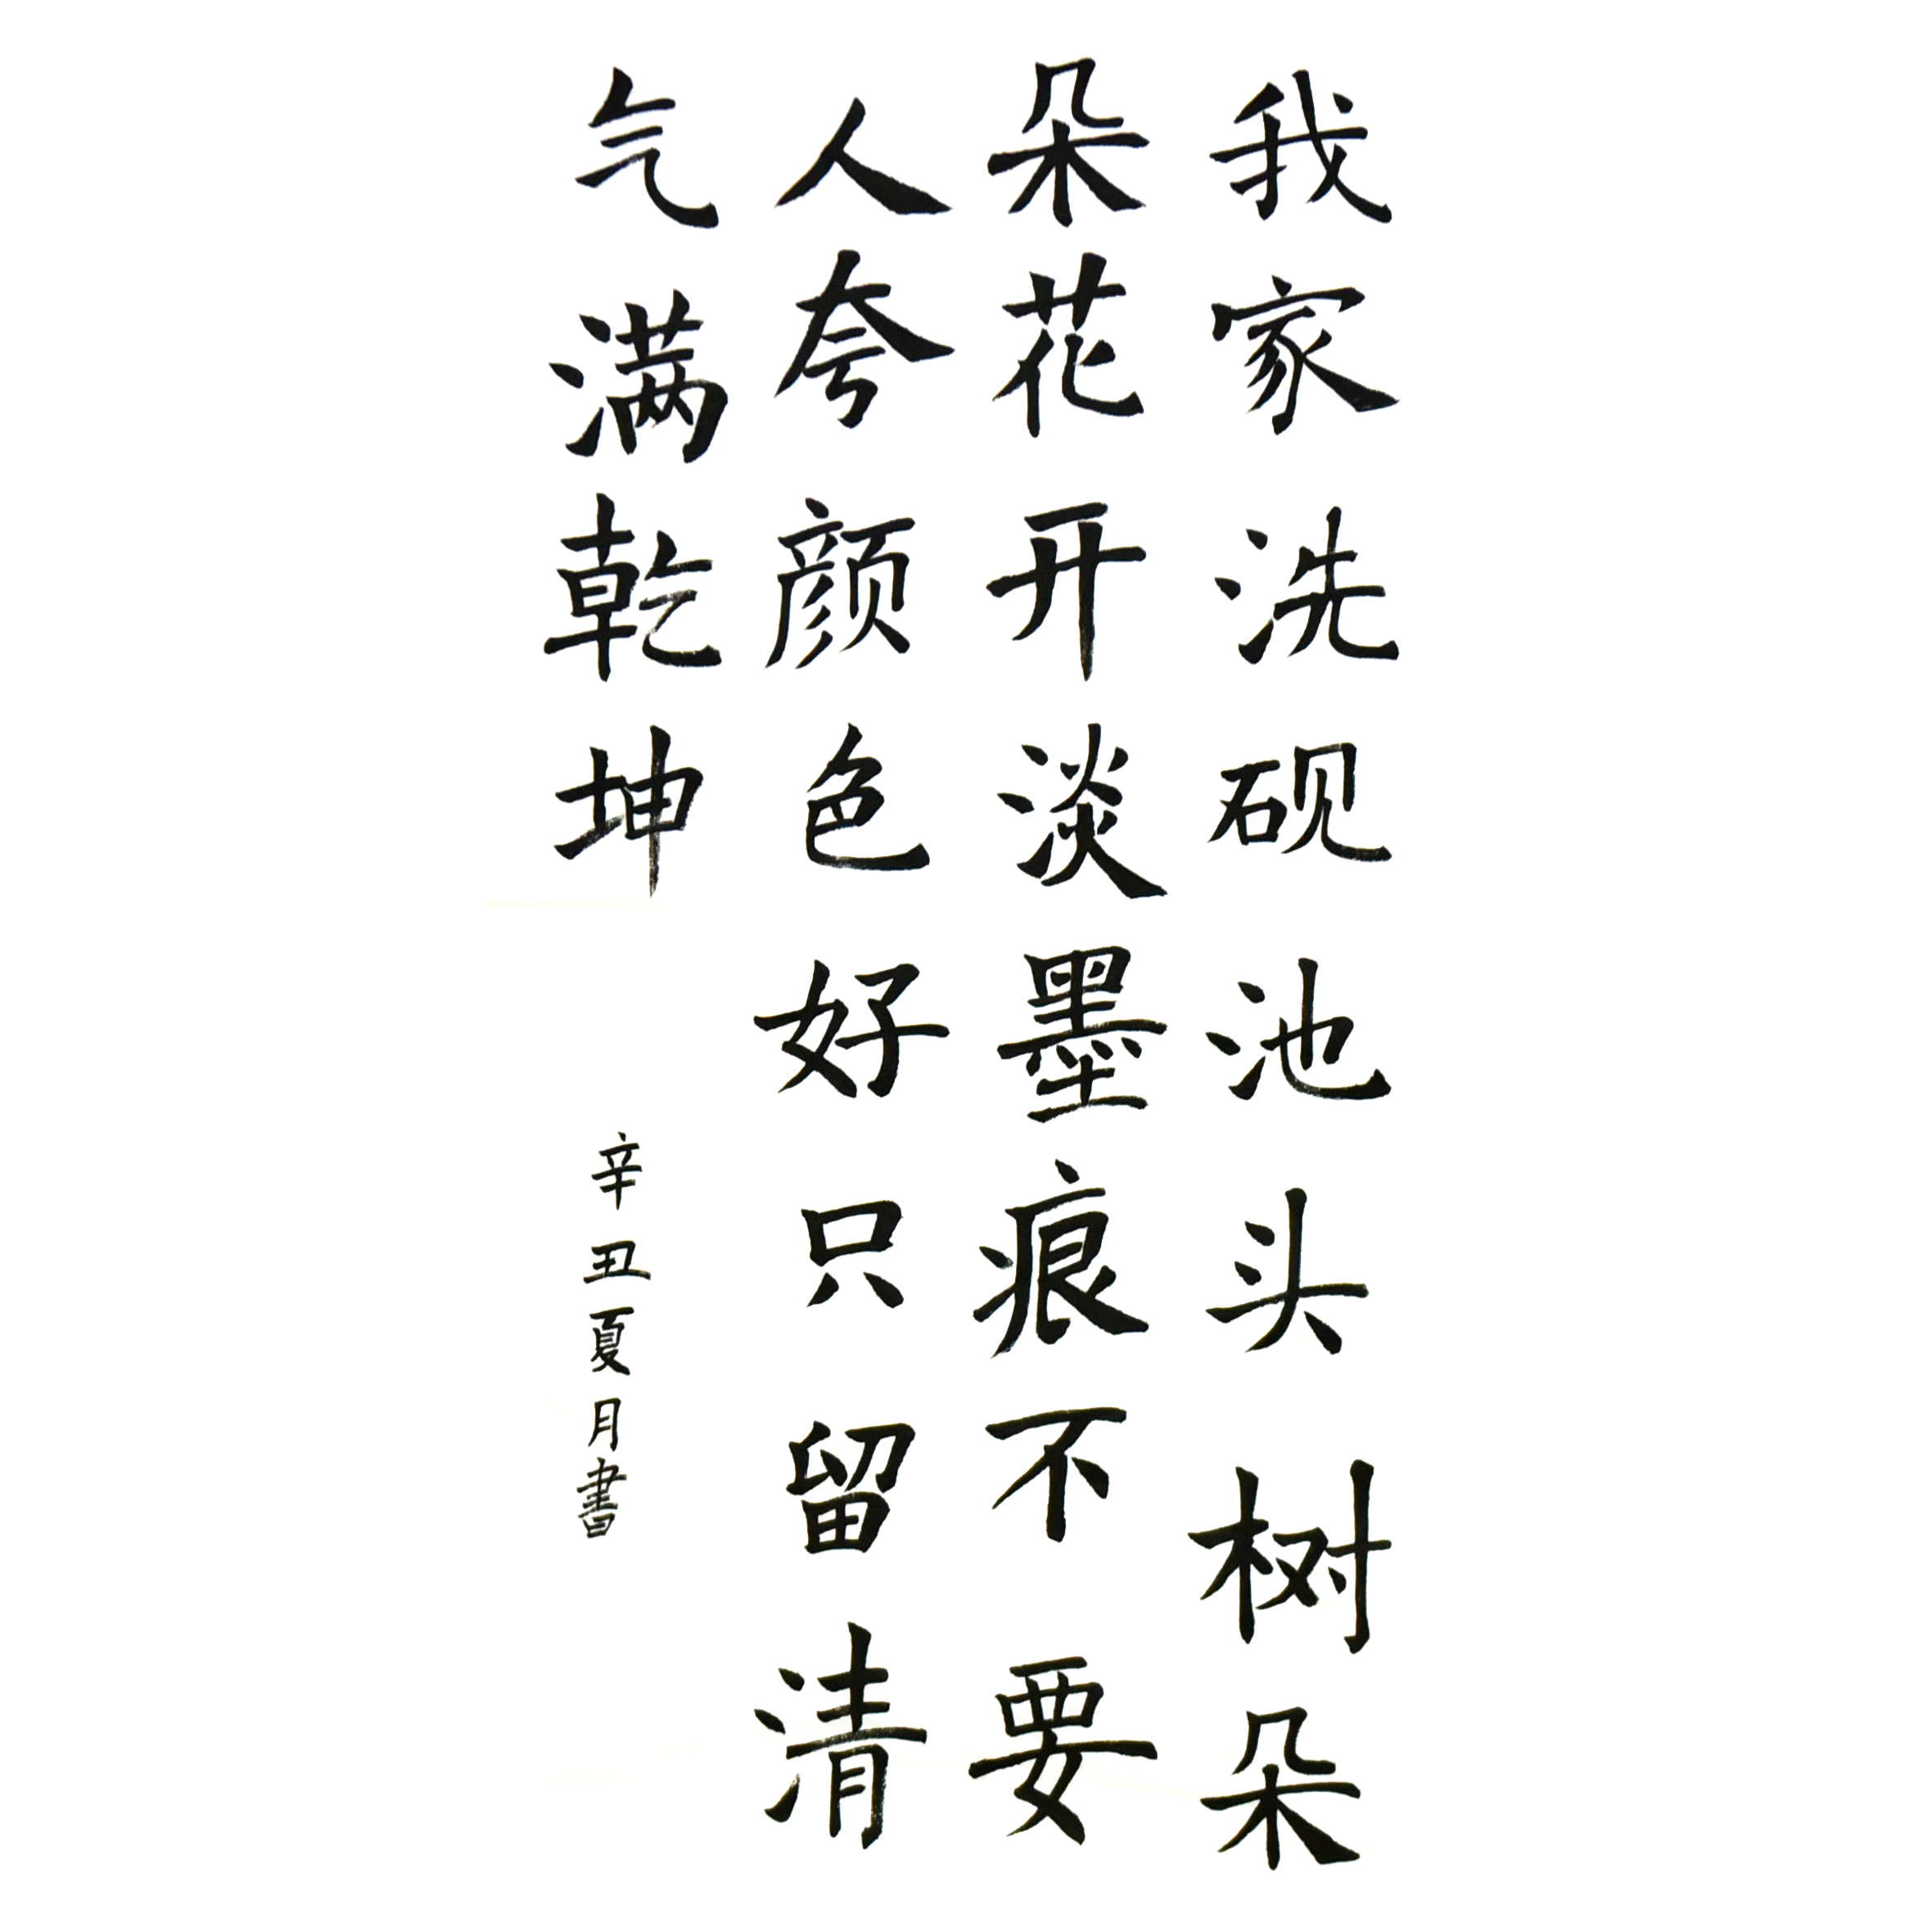 我家洗砚池头树朵
朵花开淡墨痕不要
人夸颜色好只留清
气满乾坤
辛丑夏月書